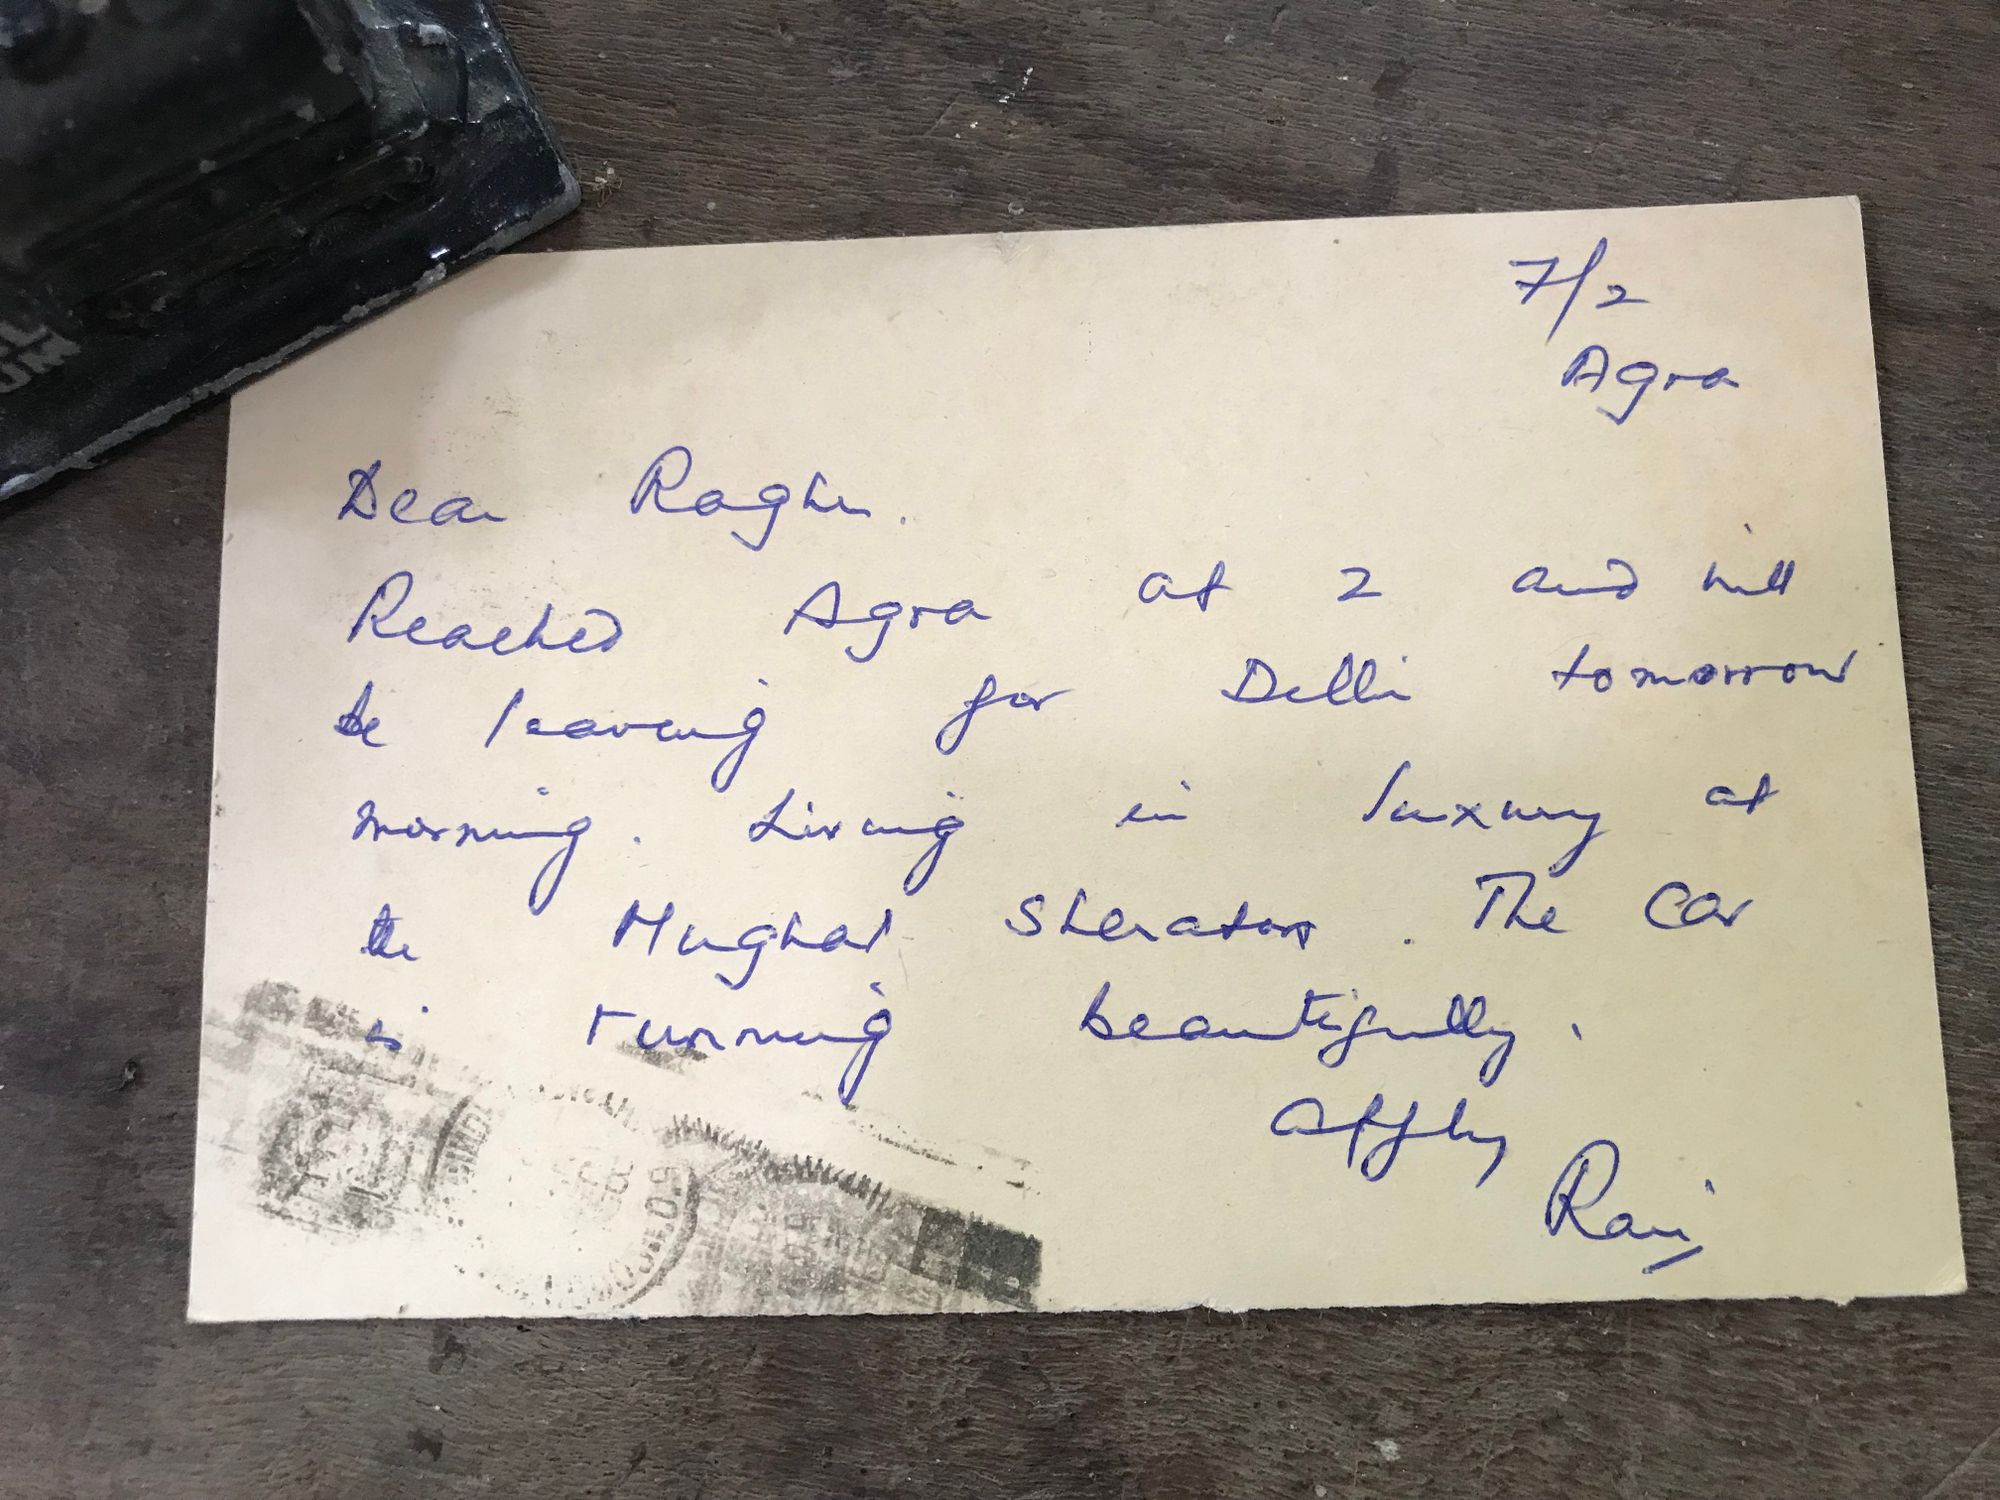 7/2
Agra
Dear Raghu.
Reached Agra at 2 and will
be leaving for Delhi tomorrow
morning. Living in luxury at
the Mughal Sheraton. The car
is running beautifully.
Affly
Raij